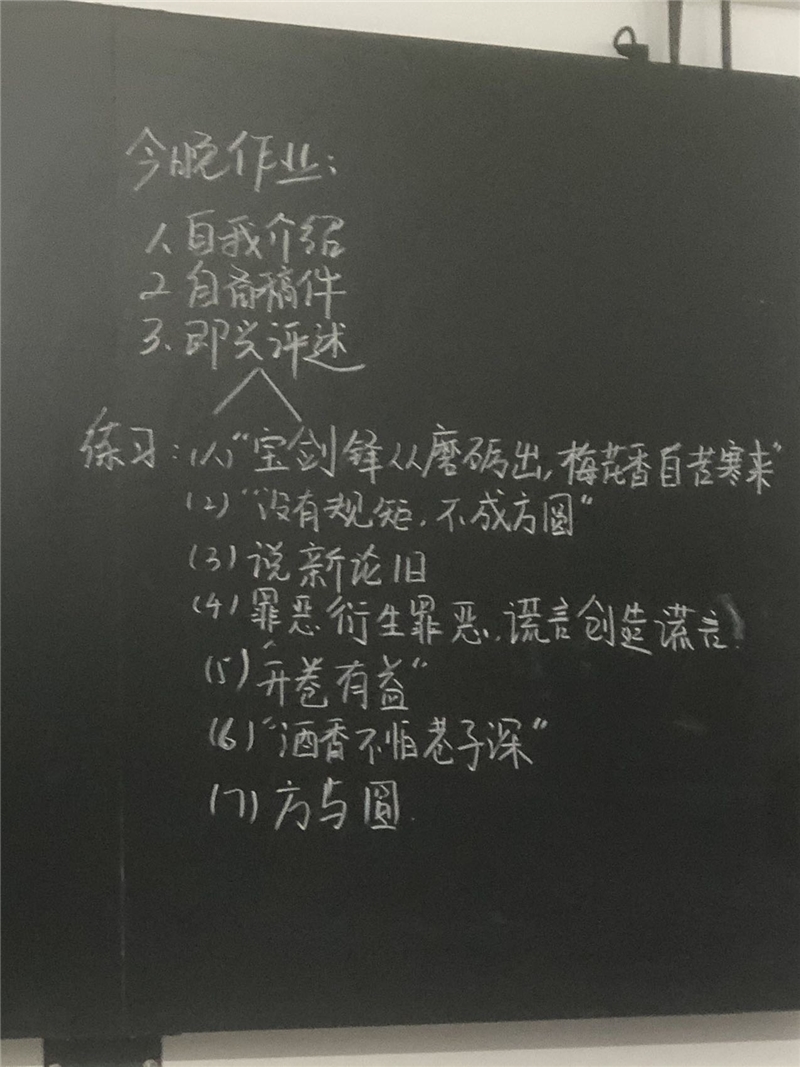 今晚作业：
1、自我介绍
2、自备稿件
3、即兴评述
练习：(1)“宝剑锋从磨砺出，梅花香自苦寒来”
(2)“没有规矩，不成方圆”
(3)说新论旧
(4)罪恶衍生罪恶，谎言创造谎言.
(5)“开卷有益”
(6)“酒香不怕巷子深”
(7)方与圆.